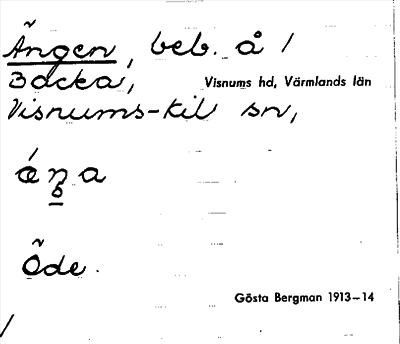 Ängen, beb. å /
Backa, Visnums hd, Värmlands län
Visnums-kil sn,
Öde.
Gösta Bergman 1913–14
/